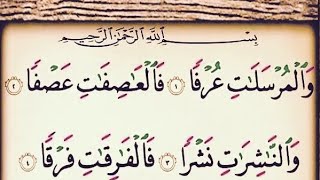 بِسْمِ ٱللَّهِ ٱلرَّحْمَٰنِ ٱلرَّحِيمِ
وَٱلْمُرْسَلَٰتِ عُرْفًا ١ فَٱلْعَٰصِفَٰتِ عَصْفًا ٢
وَٱلنَّٰشِرَٰتِ نَشْرًا ٣ فَٱلْفَٰرِقَٰتِ فَرْقًا ٤